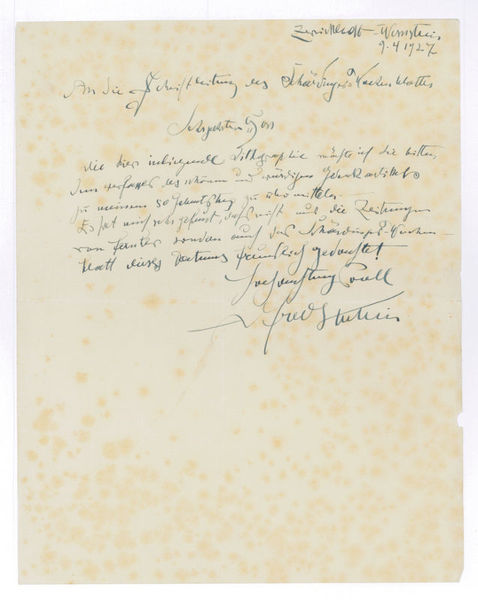 Zwickledt-Wernstein
9.4.1927
An die Schriftleitung des Schärdinger-Wochenblattes
die hier inliegende Lithographie möchte ich Sie bitten
dem Verfasser des schönen und würdigen Gedenkartikels
zu meinem 50 Geburtstag zu übermitteln.
Es hat mich sehr gefreut, dass nicht nur die Zeitungen
von fern sondern auch das Schärdinger-Wochen-
blatt dieses Datums freundlich gedachte!
hochachtungsvoll
Alfred Kubin